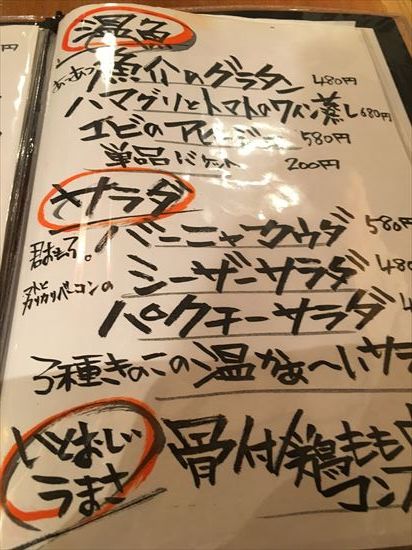 温魚
あーあつ 魚介のグラタン 480円
ハマグリとトマトのワイン蒸し 680円
エビのアヒージョ 580円
単品バケット 200円
サラダ
バーニャカウダ 580円
君おもふ。
シーザーサラダ 480
トマトとカリカリベーコンの
パクチーサラダ 4
3種きのこの温かぁ〜いサラ
いとおしい
うまさ
骨付鶏もも
コンフ